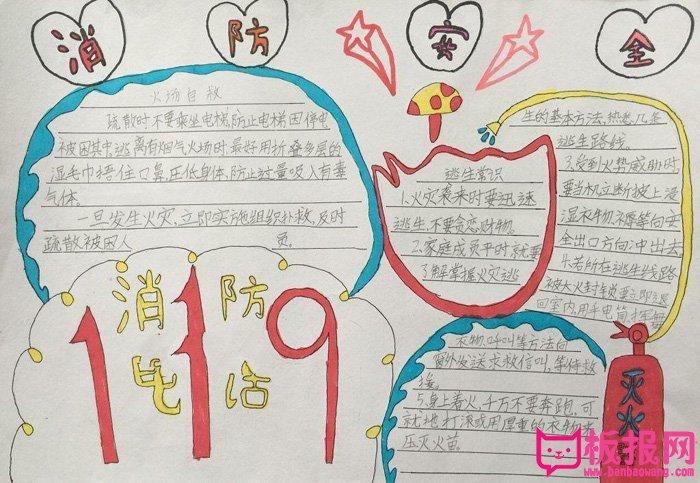 消 防 安 全
火场自救
疏散时不要乘坐电梯,防止电梯因停电
被困其中,逃离有烟气火场时最好用折叠多层的
湿毛巾捂住口鼻,压低身体,防止过量吸入有毒
气体.
一旦发生火灾,立即实施组织扑救,及时
疏散被困人 员.
消防
电话
119
逃生常识
1.火灾袭来时要迅速
逃生,不要贪恋财物.
2.家庭成员平时就要
了解掌握火灾逃
生的基本方法,熟悉几条
逃生路线.
3.受到火势威胁时,
要当机立断披上浸
湿衣物、褥等向安
全出口方向冲出去
4.若所在逃生线路
被大火封锁,要立即退
回室内,用手电筒挥舞
衣物、呼叫等方法向
窗外发送求救信叫,等待救
援.
5.身上着火,千万不要奔跑,可
就地打滚或用厚重的衣物来
压灭火苗.
灭火
板报网
www.banbaowang.com